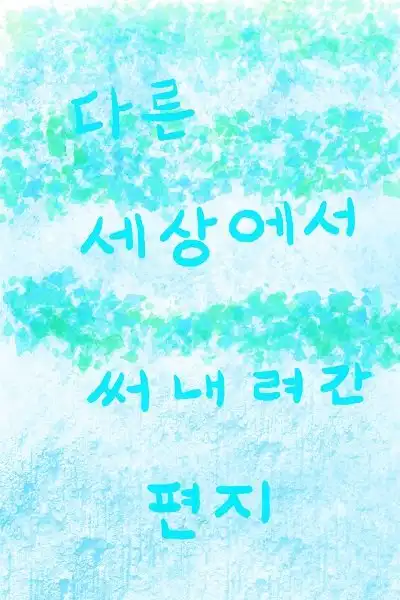 다른
세상에서
써내려간
편지